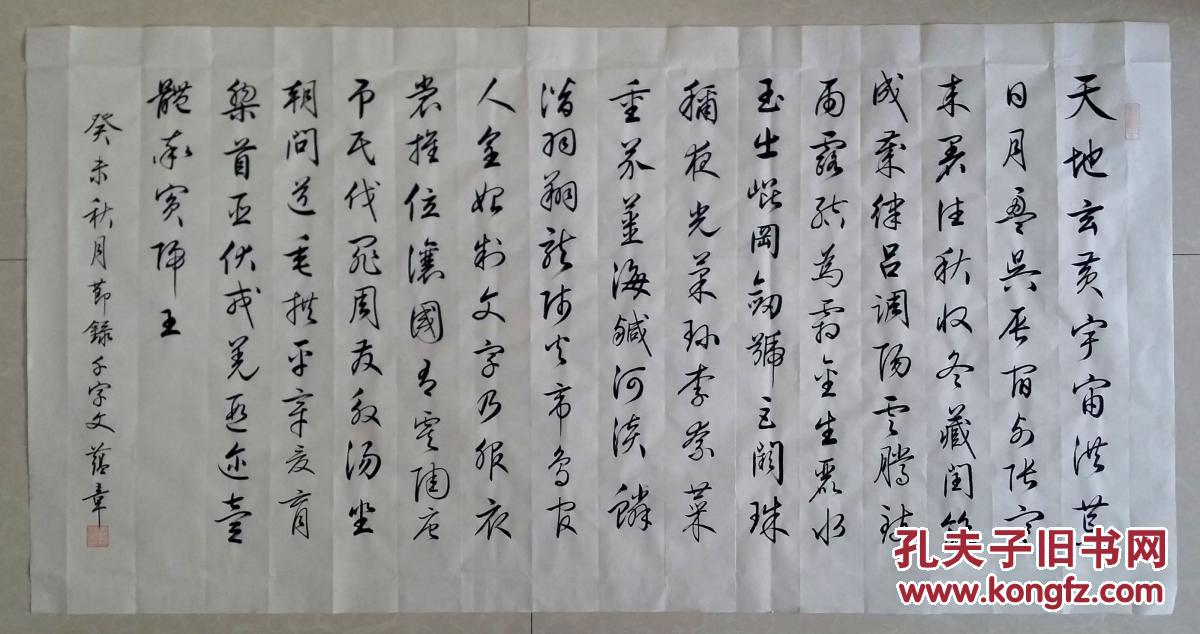 天地玄黄宇宙洪荒
日月盈昃辰宿列張寒
来暑往秋收冬藏閏餘
成歲律吕調陽雲騰致
雨露結為霜金生麗水
玉出崐岡劒號巨闕珠
稱夜光菓珍李柰菜
重芥薑海鹹河淡鱗
潛羽翔龍師火帝鳥官
人皇始制文字乃服衣
裳推位讓國有虞陶唐
吊民伐罪周發殷湯坐
朝問道垂拱平章愛育
黎首臣伏戎羌遐迩壹
體率賓歸王
癸未秋月節錄千字文章
孔夫子旧书网
www.kongfz.com